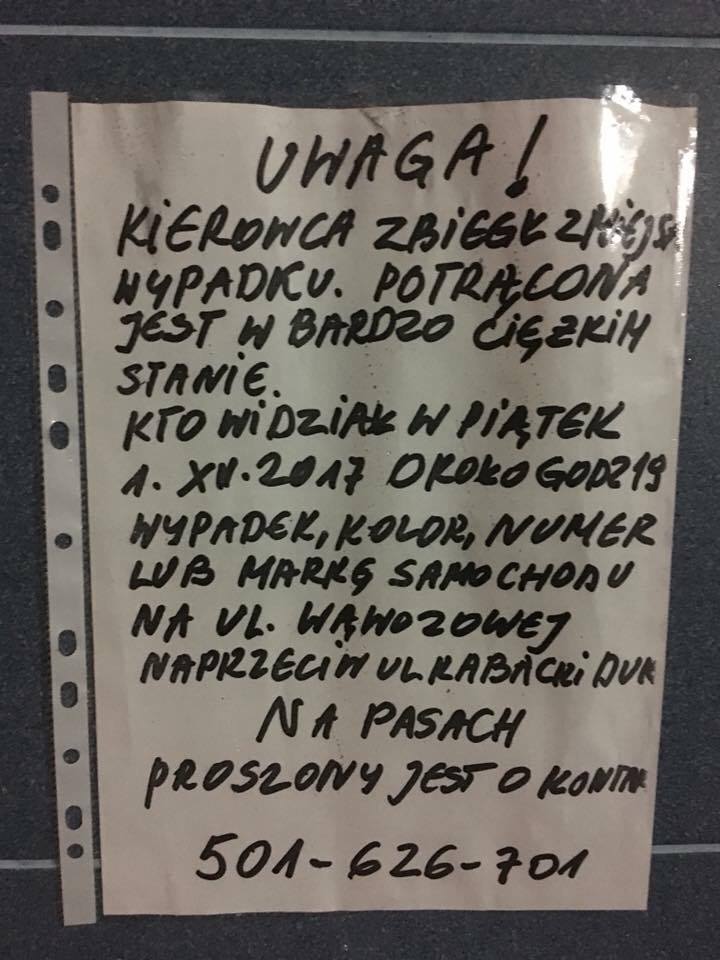 UWAGA!
KIEROWCA ZBIEGŁ Z MIEJSC
WYPADKU. POTRĄCONA
JEST W BARDZO CIĘŻKIM
STANIE.
KTO WIDZIAŁ W PIĄTEK
1. XII. 2017 OKOŁO GODZ 19
WYPADEK, KOLOR, NUMER
LUB MARKĘ SAMOCHODU
NA UL. WĄWOZOWEJ
NAPRZECIW UL KABACKI DUK
NA PASACH
PROSZONY JEST O KONTAK
501-626-701